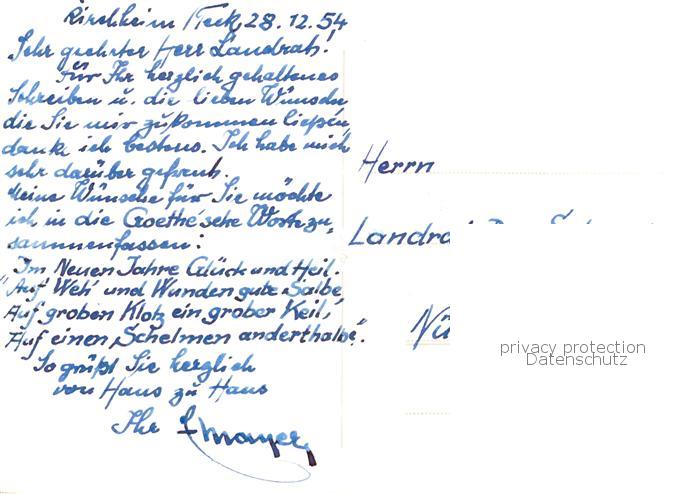 Kirchheim/Teck, 28.12.54
Sehr geehrter Herr Landrat!
Für Ihr herzlich gehaltenes
Schreiben u. die lieben Wünsche,
die Sie mir zukommen ließen,
danke ich bestens. Ich habe mich
sehr darüber gefreut.
Meine Wünsche für Sie möchte
ich in die Goethe'sche Worte zu-
sammenfassen:
Im Neuen Jahre Glück und Heil.
"Auf Weh' und Wunden gute Salbe
Auf groben Klotz ein grober Keil,
Auf einen Schelmen anderthalbe".
So grüßt Sie herzlich
von Haus zu Haus
Ihr E Mayer
Herrn
Landra
Nü
privacy protection
Datenschutz